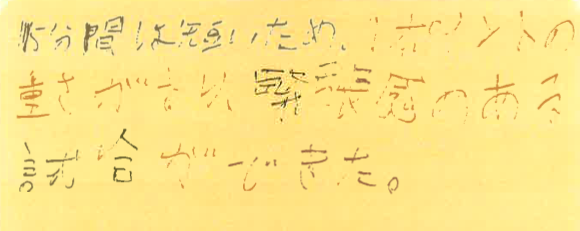 15分間は短いため、1ポイントの
重さがまし緊張感のある
試合ができた。